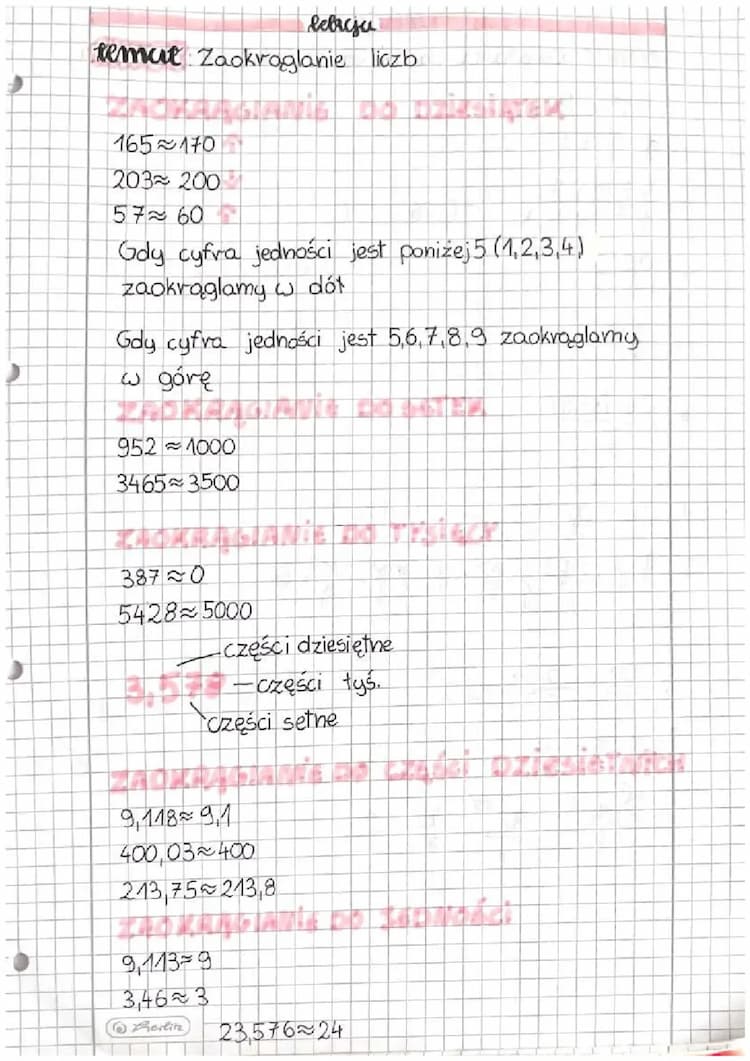 lekcja
temat: Zaokrąglanie liczb
ZAOKRĄGLANIE DO DZIESIĄTEK
165≈170 ↑
203≈ 200 ↓
57≈ 60 ↑
Gdy cyfra jedności jest poniżej 5 (1,2,3,4)
zaokrąglamy w dół
Gdy cyfra jedności jest 5,6,7,8,9 zaokrąglamy
w górę
ZAOKRĄGLANIE DO SETEK
952 ≈ 1000
3465≈ 3500
ZAOKRĄGLANIE DO TYSIĘCY
387 ≈ 0
5428≈ 5000
części dziesiętne
3,578 — części tyś.
części setne
ZAOKRĄGLANIE DO CZĘŚCI DZIESIĘTNYCH
9,118≈ 9,1
400,03≈400
213,75≈213,8
ZAOKRĄGLANIE DO JEDNOŚCI
9,113≈9
3,46≈ 3
23,576≈24